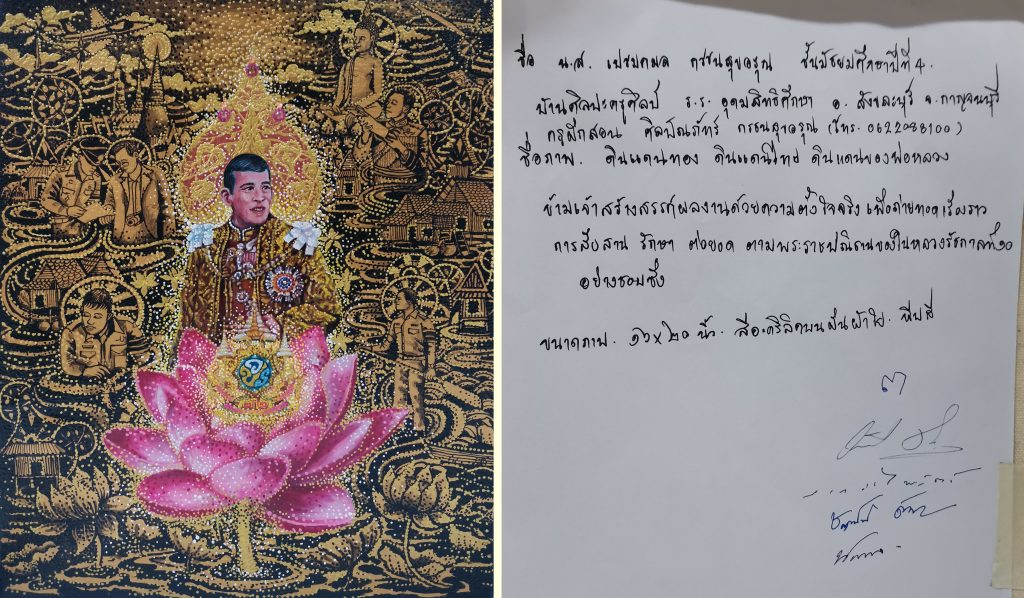 ชื่อ น.ส. เปรมกมล กรชนสุขอรุณ ชั้นมัธยมศึกษาปีที่ 4.
บ้านศิลปะครูศิลป์ ร.ร. อุดมสิทธิศึกษา อ. สังขละบุรี จ.กาญจนบุรี
ครูฝึกสอน ศิลป์ณภัทร์ กรชนสุขอรุณ (โทร. 0622088100)
ชื่อภาพ. ดินแดนทอง ดินแดนไทย ดินแดนของพ่อหลวง
ข้าพเจ้าสร้างสรรค์ผลงานด้วยความตั้งใจจริง เพื่อถ่ายทอดเรื่องราว
การสืบสาน รักษา ต่อยอด ตามพระราชปณิธานของในหลวงรัชกาลที่๑๐
อย่างซาบซึ้ง
ขนาดภาพ. ๑๖x๒๐ นิ้ว. สีอะคริลิคบนผืนผ้าใบ.